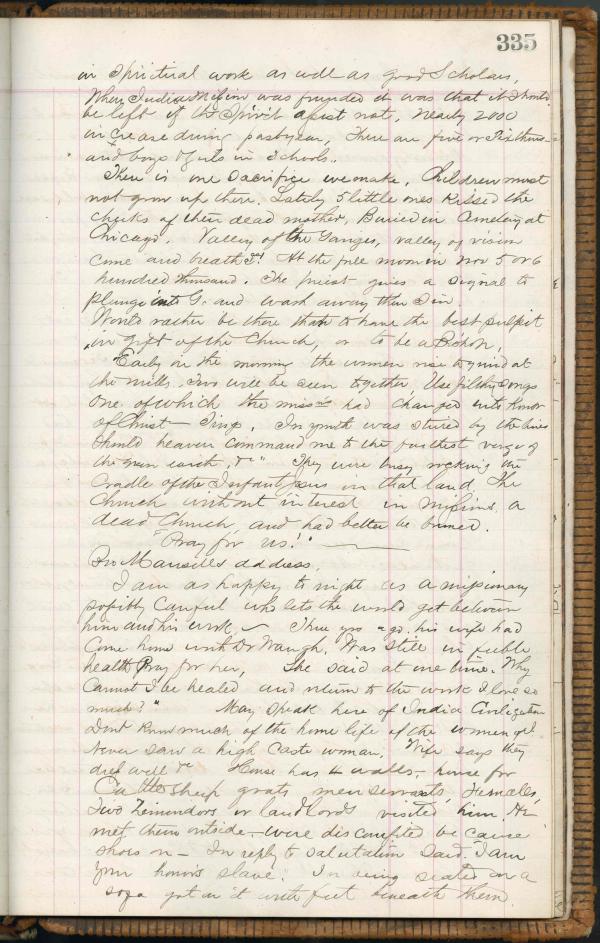 335
in Spiritual work as well as good Scholars,
When India Mission was founded it was that it should
be left if the Spirit or not, nearly 2000
increase during past year, There are five or six thous-
and boys & girls in Schools.
There is one Sacrifice we make. Children must
not grow up there. Lately 5 little ones kissed the
cheeks of their dead mother, Buried in Cemetery at
Chicago. Valley of the Ganges, valley of vision
come and breath &c! At the full moon in Nov 5 or 6
hundred thousand. The priest gives a signal to
plunge into G. and wash away their Sin.
Would rather be there than to have the best pulpit
in gift of the Church, or to be a Bishop,
Early in the morning the women rise to grind at
the mills, two will be seen together. Use filthy songs
One of which the miss had changed into
of Christ - Sing. In youth was stired by the lines
Should heaven command me to the farthest verge of
the green earth, &c" They were busy rocking the
Cradle of the Infant Jesus in that land. The
Church without interest in missions a
dead Church, and had better be buried.
"Pray for us!"
Bro Mansells address.
I am as happy to night as a missionary
possibly can ful who lets the world get between
him and his work. Three yrs ago his wife had
Come home with Dr Waugh. Was still in feeble
health Pray for her, She said at one time. Why
Cannot I be healed and return to the work I love so
much?" May speak here of India Civilization
Dont know much of the home life of the women
Never saw a high caste woman. Wife says they
well &c House has 4 walls, - house for
Cattle sheep goats men servants, Females,
Two Zemindors or landlords visited him. He
met them outside - were discomfited because
shoes on - In reply to salutation said. I am
your honor's slave. In being seated on a
sofa got on it with feet beneath them.